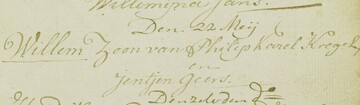 Willemina Jans.
Den 22 Meij
Willem Zoon van Philip Karel Kregel
en
Jentjen Geers.
Denzelvden